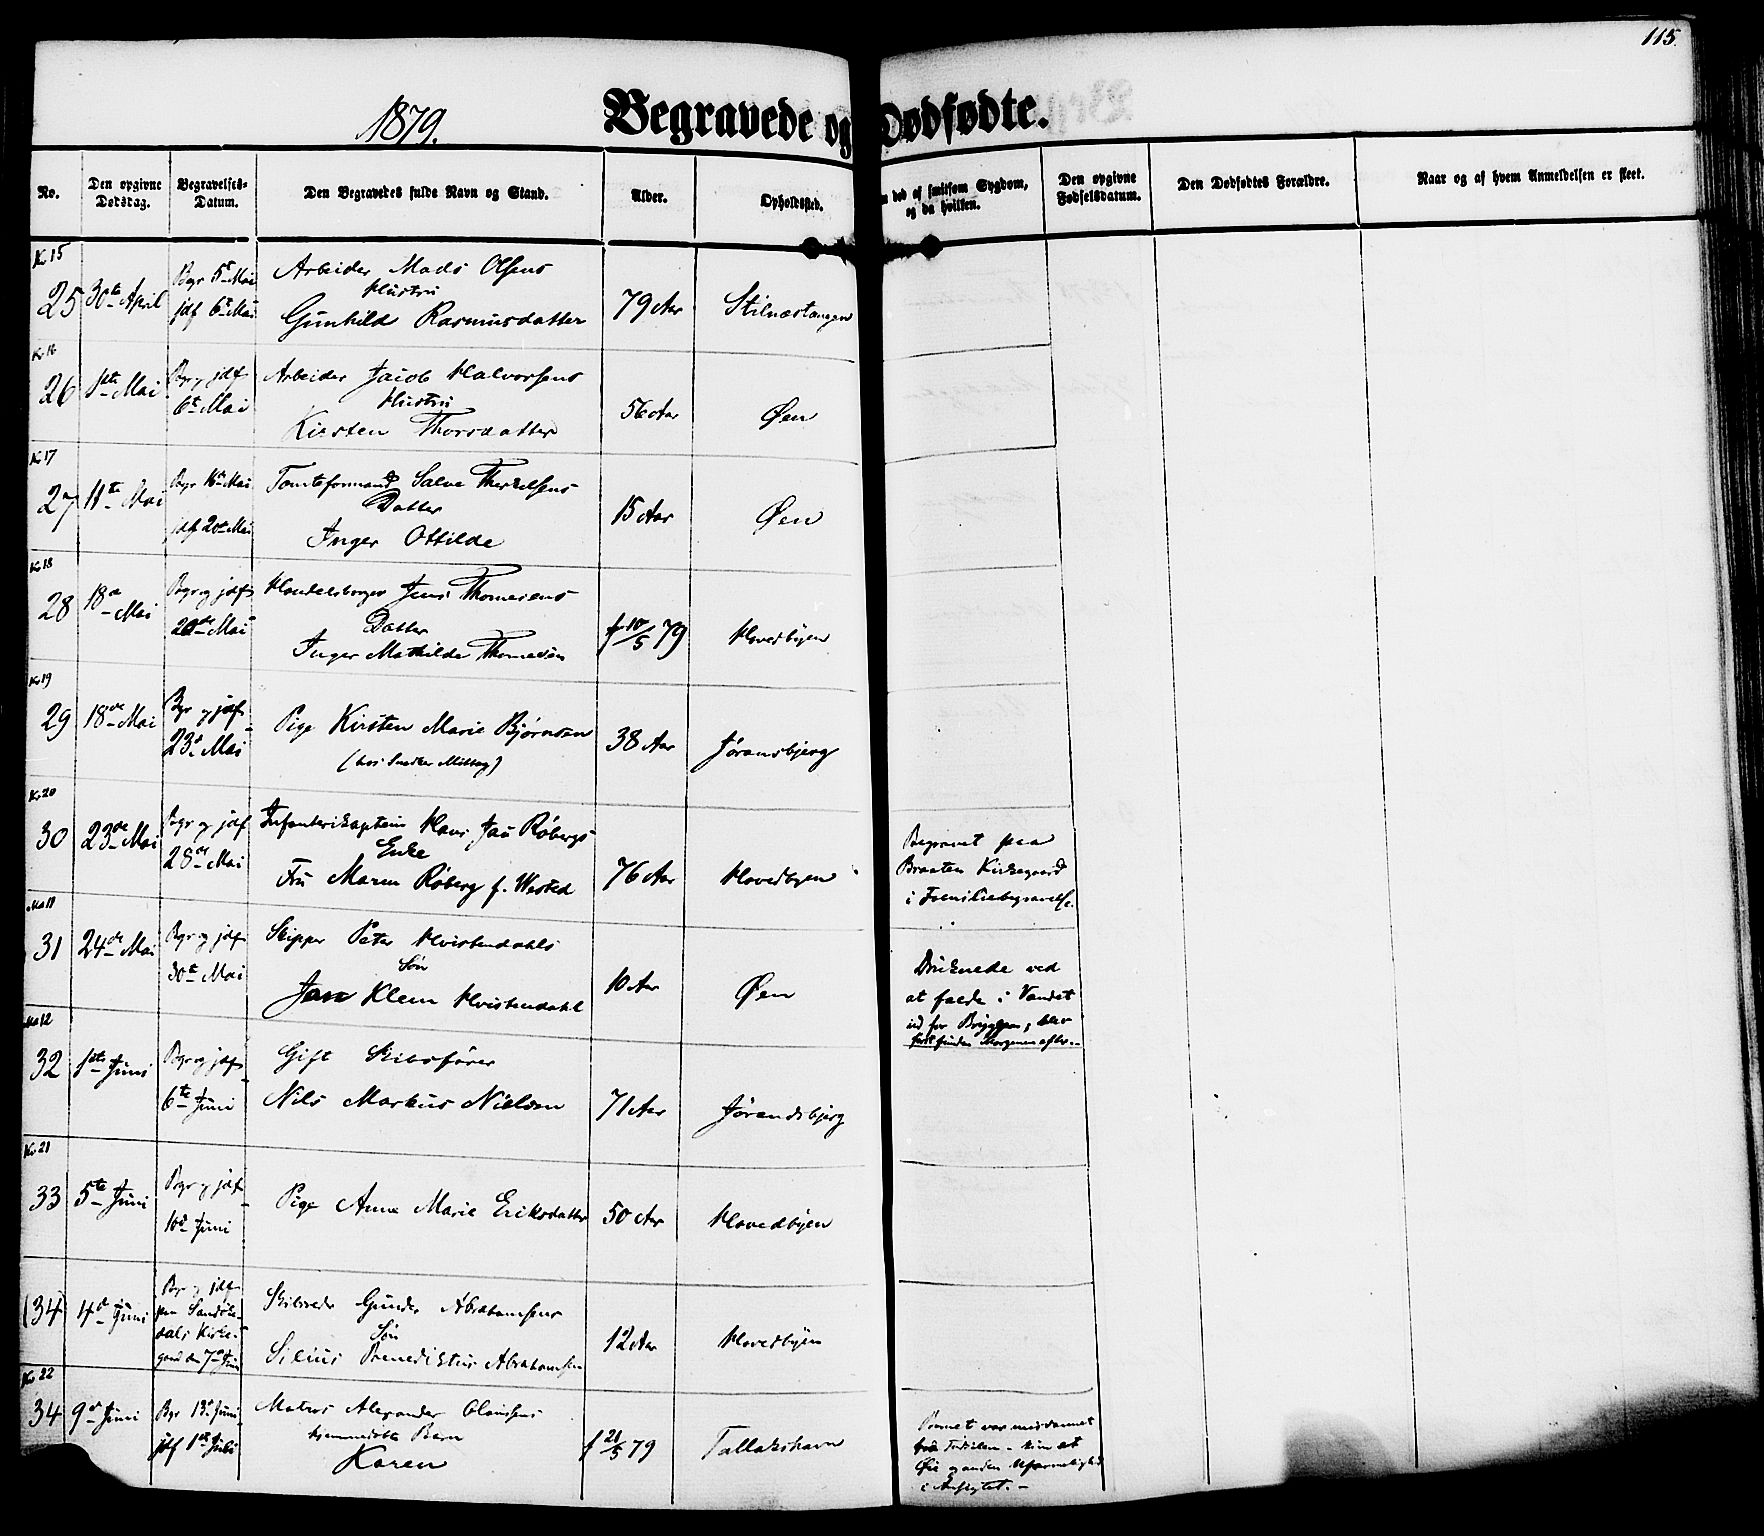 115.
1879.
Begravede og Dødfødte.
No.
Den opgivne Dødsdag.
Begravelses-Datum.
Den Begravedes fulde Navn og Stand.
Alder.
Opholdssted.
død af smitsom Sygdom, og da hvilken.
Den opgivne Fødselsdatum.
Den Dødfødtes Forældre.
Naar og af hvem Anmeldelsen er skeet.
Kv 15
25 30te April Bgr 5te Mai jdf 6te Mai
Arbeider Mads Olsens
Hustru
Gunhild Rasmusdatter
79 Aar Stilnæstangen
Kv 16
26 1ste Mai Bgr og jdf 6te Mai
Arbeider Jacob Halvorsens
Hustru
Kirsten Thorsdatter
56 Aar Øen
Kv 17
27 11te Mai Bgr 16de Mai jdf 20de Mai
Tomteformand Salve Therkelsens
Datter
Inger Ottilde
15 Aar Øen
Kv 18
28 18de Mai Bgr og jdf 20de Mai
Handelsborger Jens Thomesens
Datter
Inger Mathilde Thomesen
f 10/5 79 Hovedbyen
Kv 19
29 18de Mai Bgr og jdf 23de Mai
Pige Kirsten Marie Bjørnsen
(hos Snedker)
38 Aar Jøransbjerg
Kv 20
30 23de Mai Bgr og jdf 28de Mai
Infanterikaptein Hans Jan Røbergs
Enke
Fru Maren Røberg f. Wested
76 Aar Hovedbyen
Begravet paa
Braaten Kirkegaard
i Familiebegravelse.
Ma 11
31 24de Mai Bgr og jdf 30te Mai
Skipper Peter Hvistendahls
Søn
Jan Klem Hvistendahl
10 Aar Øen
Druknede ved
at falde i Vandet
ud for Bryggen, blev
først funden Morgenen efter.
Ma 12
32 1ste Juni Bgr og jdf 6te Juni
Gift Skibsfører
Nils Markus Nielsen
71 Aar Jørandsbjerg
Kv 21
33 5te Juni Bgr og jdf 10de Juni
Pige Anne Marie Eriksdatter
50 Aar Hovedbyen
(34) 4de Juni Bgr og jdf
paa Sandøke-
dals Kirke-
gaard den 7de Juni
Skibsreder Gunder Abrahamsens
Søn
Silius Benediktus Abrahamsen
12 Aar Hovedbyen
Kv 22
34 9de Juni Bgr 13de Juni jdf 1ste Juli
Matros Alexander Olaussens
hjemmedøbte Barn
Karen
f 21/5 79 Tallakshavn
Barnet var misdannet
fra Fødselen - kun et
Øie og anden Uformelighed
i Ansigtet. -